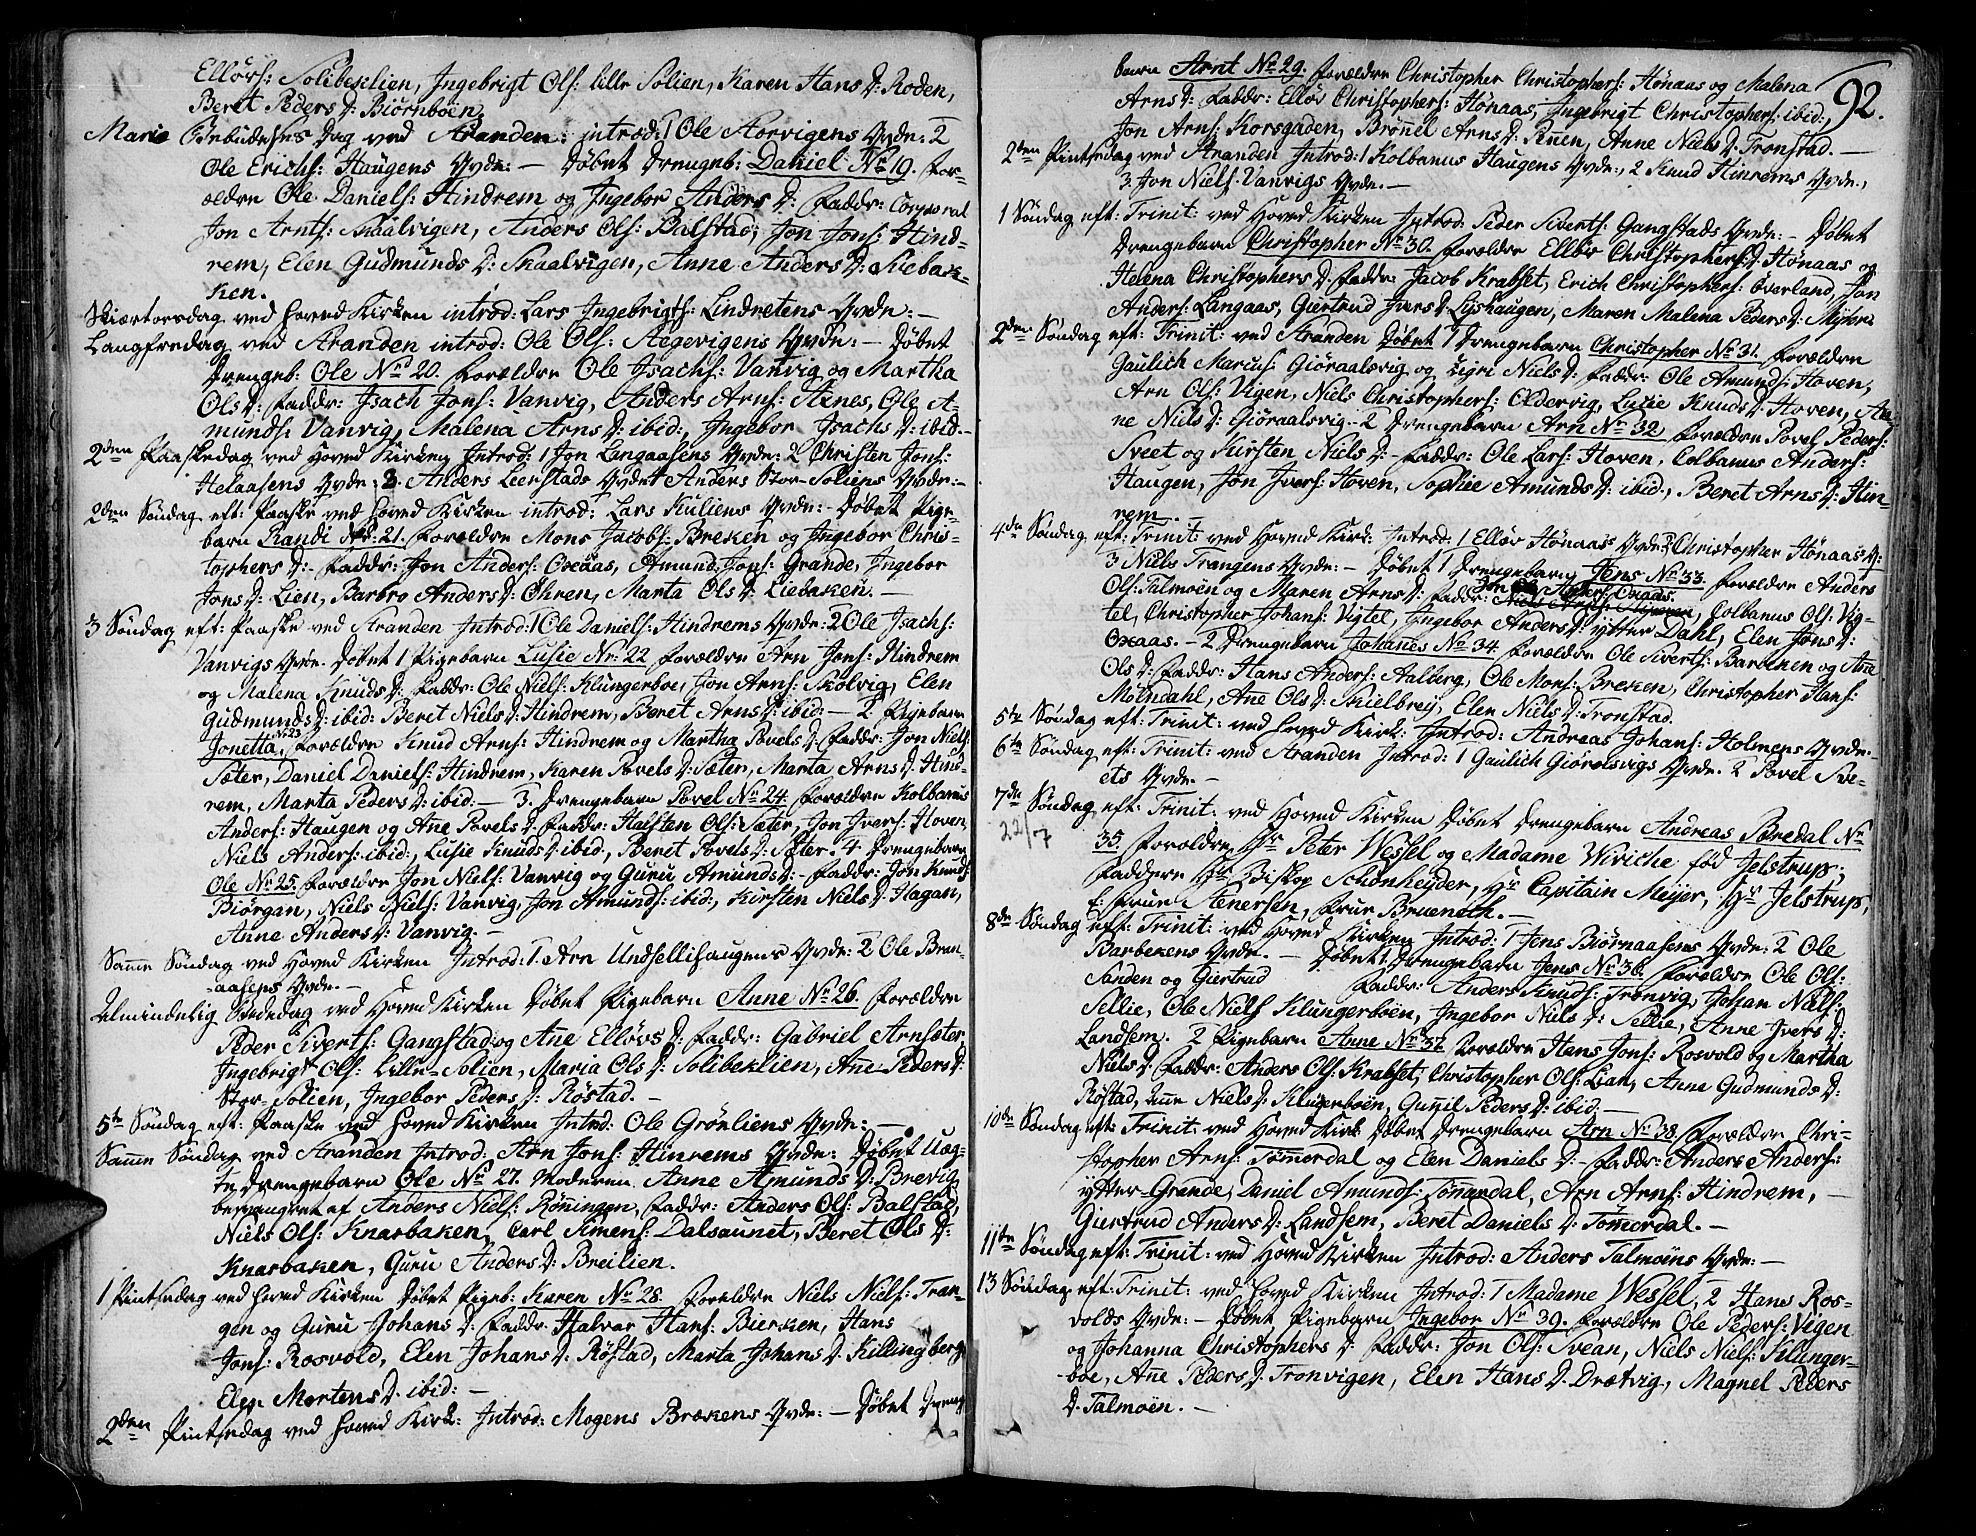 Ellørs: Solibeklien, Ingebrigt Ols: lille Solien, Karen Hans D: Roden,
Beret Peders D: Biørnboen.
Mariæ Bebudelses Dag ved Stranden introd: 1 Ole Storvigens Qvde: 2
Ole Erichs: Haugens Qvde: — Døbet Drengeb: Daniel No 19. For-
ældre Ole Daniels: Hindrem og Ingebor Anders D: Faddr: Corporal
Jon Arnts: Skaalvigen, Anders Ols: Balstad, Jon Jons: Hind-
rem, Elen Gudmunds D: Skaalvigen, Anne Anders D: Kiebak-
ken.
Skiærtorsdag ved Hoved Kirken introd: Lars Ingebrigts: Lindretens Qvde: —
Langfredag ved Stranden introd: Ole Ols: Aegevigens Qvde: — Døbet
Drengeb: Ole No 20. Forældre Ole Isachs: Vanvig og Martha
Ols D: Faddr: Isach Jons: Vanvig, Anders Arns: Stines, Ole A-
munds: Vanvig, Malena Arns D: ibid:, Ingebor Isachs D: ibid. —
2den Paaskedag ved Hoved Kirken Introd: 1 Jon Langaasens Qvde: 2 Christen Jons:
Helaasens Qvde: 3. Anders Leerstads Qvde: Anders Stor-Soliens Qvde: —
2den Søndag eft: Paaske ved Hoved Kirken introd: Lars Kuliens Qvde: — Døbet Pige-
barn Randi No: 21. Forældre Mons Jacobs: Breken og Ingebor Chris-
tophers D: — Faddr: Jon Anders: Oxaas, Amund Jons: Grande, Ingebor
Jons D: Lien, Barbro Anders D: Ohren, Marta Ols D: Liebaken. —
3 Søndag eft: Paaske ved Stranden Introd: 1 Ole Daniels: Hindrems Qvde: 2 Ole Isachs:
Vanvigs Qvde. Døbet 1 Pigebarn Lusie No: 22 Forældre Arn Jons: Hindrem
og Malena Knuds D: Faddr: Ole Niels: Klungerboe, Jon Arns: Skolvig, Elen
Gudmunds D: ibid: Beret Niels D: Hindrem, Beret Arns D: ibid: — 2 Pigebarn
Jonetta No 23, Forældre Knud Arns: Hindrem og Martha Povels D: Faddr: Jon Niels:
Sæter, Daniel Daniels: Hindrem, Karen Povels D: Sæter, Marta Arns D: Hind-
rem, Marta Peders D: ibid. — 3. Drengebarn Povel No 24. Forældre Kolbanus
Anders: Haugen og Ane Povels D: Faddr: Halsten Ols: Sæter, Jon Ivers: Hoven,
Niels Anders: ibid:, Lusie Knuds D: ibid, Beret Povels D: Sæter. 4 Drengebarn
Ole No 25. Forældre Jon Niels: Vanvig og Guru Amunds D: — Faddr: Jon Knuds:
Biørgan, Niels Niels: Vanvig, Jon Amunds: ibid:, Kirsten Niels D: Hagan,
Anne Anders D: Vanvig. —
Samme Søndag ved Hoved Kirken Introd: 1. Arn Undsellihaugens Qvde: 2. Ole Bren-
aasens Qvde. —
Almindelig Bededag ved Hoved Kirken Døbet Pigebarn Anne No 26. Forældre
Peder Siverts: Gangstad og Ane Ellørs D: Faddr: Gabriel Arnsæter,
Ingebrigt Ols: Lille-Solien, Maria Ols D: Solibeklien, Ane Peders D:
Stor-Solien, Ingebor Peders D: Røstad. —
5te Søndag eft: Paaske ved Hoved Kirken Introd: Ole Grönliens Qvde: —
Samme Søndag ved Stranden Introd: Arn Jons: Hinrems Qvde: Døbet Uæg-
te Drengebarn Ole No 27. Moderen Anne Amunds D: Brevig
besvangret af Anders Niels: Røningen, Faddr: Anders Ols: Balstad,
Niels Ols: Knarbaken, Carl Simens: Dalsaunet, Beret Ols D:
Knarbaken, Guru Anders D: Breilien.
1 Pintsedag ved Hoved Kirken Døbet Pigeb: Karen No 28. Forældre Niels Niels: Tran-
gen og Guru Johans D: Faddr: Halvar Hans: Bierken, Hans
Jons: Rosvold, Elen Johans D: Røstad, Marta Johans D: Killingberg,
Elen Mortens D: ibid: —
2den Pintsedag ved Hoved Kirk: Introd: Mogens Brækens Qvde: — Døbet Drenge
92.
barn Arnt No 29. Forældre Christopher Christophers: Hønaas og Malena
Arns D: Faddr: Elløv Christophers: Hønaas, Ingebrigt Christophers: ibid:,
Jon Arns: Korsgaden, Brønel Arns D: Ruen, Anne Niels D: Tronstad. —
2den Pintsedag ved Stranden Introd: 1 Kolbanus Haugens Qvde:, 2 Knud Hinrems Qvde:,
3. Jon Niels: Vanvigs Qvde. —
1 Søndag eft: Trinit: ved Hoved Kirken Introd: Peder Siverts: Gangstads Qvde: — Døbet
Drengebarn Christopher No 30. Forældre Elløv Christophers: Hønaas og
Helena Christophers D: Faddr: Jacob Krabset, Erich Christophers: Overland, Jon
Anders: Langaas, Giertrud Ivers D: Lyshaugen, Maren Malena Peders D: Myhre.
2den Søndag eft: Trinit: ved Stranden Døbet 1 Drengebarn Christopher No 31. Forældre
Gaulich Marius: Giøraalsvig og Sigri Niels D: Faddr: Ole Amunds: Hoven,
Arn Ols: Vigen, Niels Christophers: Oldervig, Lusie Knuds D: Hoven, An-
ne Niels D: Giøraalsvig. — 2 Drengebarn Arn No 32. Forældre Povel Peders:
Sveet og Kirsten Niels D: — Faddr: Ole Lars: Hoven, Colbanus Anders:
Haugen, Jon Ivers: Hoven, Sophie Amunds D: ibid., Beret Arns D: Hin-
rem. —
4de Søndag eft: Trinit: ved Hoved Kirk: Introd: 1 Elløv Hønaas Qvde: 2 Christopher Hønaas Q:
3 Niels Trangens Qvde: — Døbet 1 Drengebarn Jens No 33. Forældre Anders
Ols: Talmoen og Maren Arns D: Faddr: Jon Anders: Oxaas, Colbanus Ols: Vig-
tel, Christopher Johans: Vigtel, Ingebor Anders D: ytter Dahl, Elen Jons D:
Oxaas. — 2 Drengebarn Johanes No 34. Forældre Ole Siverts: Barbeken og Ane
Ols D: Faddr: Hans Anders: Aalberg, Ole Mons: Breken, Christopher Hans:
Mølndahl, Ane Ols D: Skielbrey, Elen Niels D: Tronstad.
5te Søndag eft: Trinit: ved Hoved Kirk: Introd: Andreas Johans: Holmens Qvde.
6te Søndag eft: Trinit: ved Stranden Introd: 1 Gaulich Giøraalsvigs Qvde. 2 Povel Sve-
ets Qvde. —
7de Søndag eft: Trinit: ved Hoved Kirken Døbet Drengebarn Andreas Bredal No
22/7
35. Forældre Hr Peter Wessel og Madame Wiriche fød Jelstrup,
Faddere Hr Biskop Schønheyder, Hr Capitain Meyer, Hr Jelstrup,
f: Frue Stenersen, Frue Brueneth. —
8de Søndag eft: Trinit: ved Hoved Kirken Introd: 1 Jens Biørnaasens Qvde: 2 Ole
Barbekens Qvde. — Døbet 1. Drengebarn Jens No 36. Forældre Ole Ols:
Sanden og Giertrud Faddr: Anders Knuds: Tronvig, Johan Niels:
Sellie, Ole Niels Klungerboen, Ingebor Niels D: Sellie, Anne Ivers D:
Landsem. 2 Pigebarn Anne No 37. Forældre Hans Jons: Rosvold og Martha
Niels D: Faddr: Anders Ols: Krabset, Christopher Ols: Lian, Anne Gudmunds D:
Røstad, Anne Niels D: Klungerboen, Gunil Peders D: ibid. —
10de Søndag eft: Trinit: ved Hoved Kirk Døbet Drengebarn Arn No 38. Forældre Chri-
stopher Arns: Tømerdal og Elen Daniels D: — Faddr: Anders Anders:
ytter-Grande, Daniel Amunds: Tømerdal, Arn Arns: Hindrem, —
Giertrud Anders D: Landsem, Beret Daniels D: Tømerdal. —
11te Søndag eft: Trinit: ved Hoved Kirken Introd: Anders Talmoens Qvde: —
13 Søndag eft: Trinit: ved Hoved Kirken Introd: 1 Madame Wessel, 2 Hans Ros-
volds Qvde: — Døbet Pigebarn Ingebor No 39. Forældre Ole Peders: Vigen
og Johanna Christophers D: Faddr: Jon Ols: Svean, Niels Niels: Klunger-
boe, Ane Peders D: Tronvigen, Elen Hans D: Drætvig, Magnel Peders
D: Talmoen. —